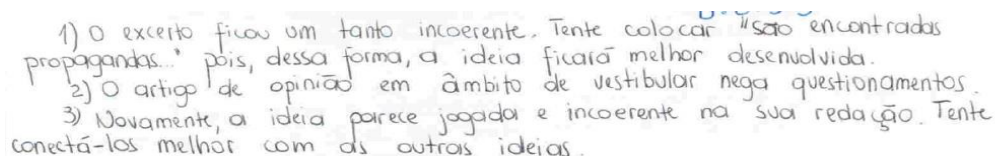 1) O excerto ficou um tanto incoerente. Tente colocar "são encontradas
propagandas..." pois, dessa forma, a ideia ficará melhor desenvolvida.
2) O artigo de opinião em âmbito de vestibular nega questionamentos.
3) Novamente, a ideia parece jogada e incoerente na sua redação. Tente
conectá-los melhor com as outras ideias.